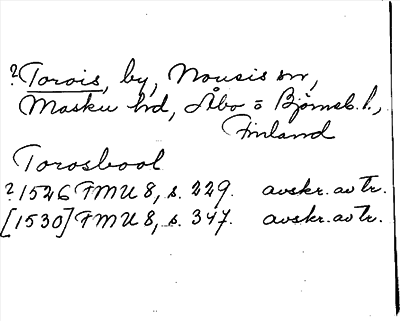 ?Torois, by, Nousis sn,
Masku hd, Åbo o Björneb. l.,
Finland
Torosbool
?1526 FMU 8, s. 229. avskr. av Tr.
[1530] FMU 8, s. 347. avskr. av Tr.